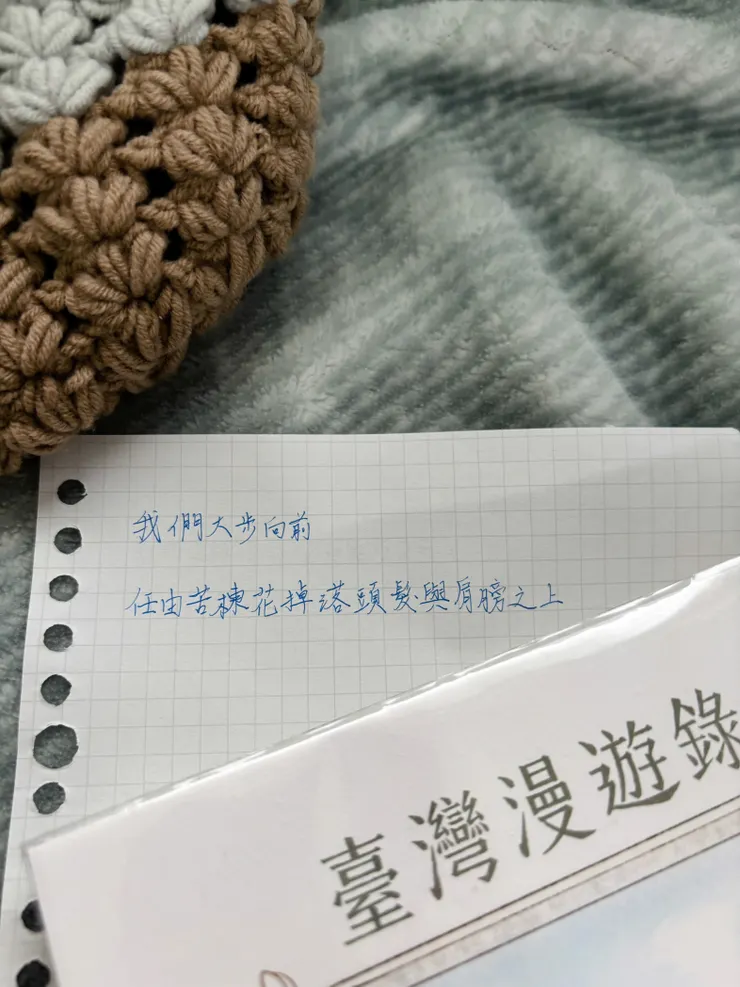 我們大步向前
任由苦楝花掉落頭髮與肩膀之上
臺灣漫遊錄